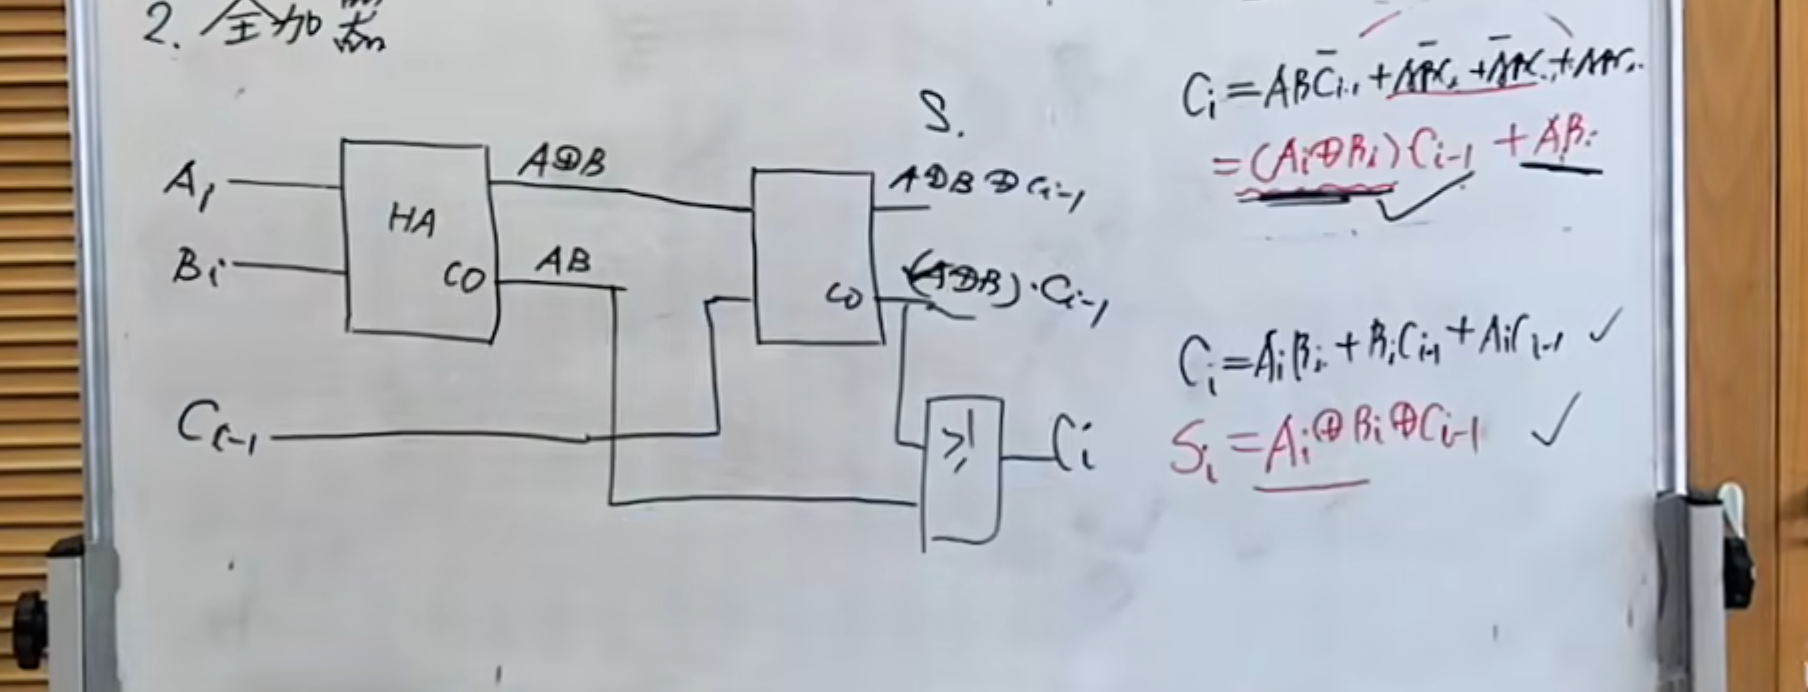 2. 全加器
S.
Ai
Bi
HA
CO
A⊕B
AB
Ci-1
CO
A⊕B⊕Ci-1
(A⊕B)·Ci-1
≥1
Ci
Ci=ABC̄i-1+AB̄Ci-1+ĀBCi-1+ABCi-1
=(Ai⊕Bi)Ci-1+AiBi
Ci=AiBi+BiCi-1+AiCi-1 ✓
Si=Ai⊕Bi⊕Ci-1 ✓